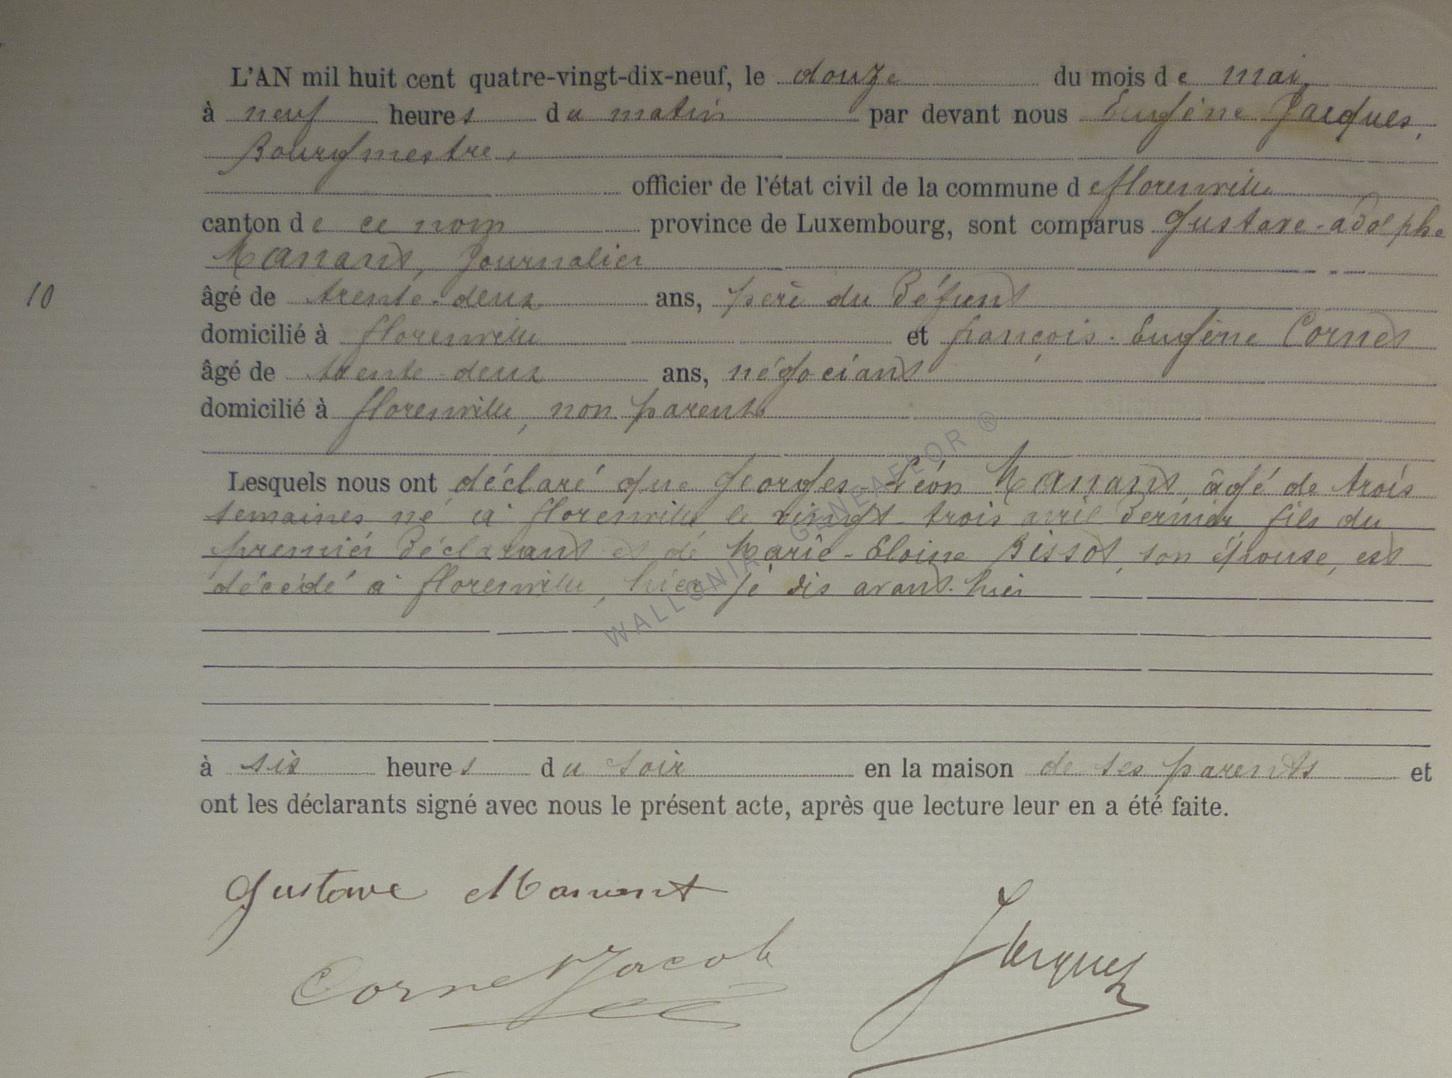 L'AN mil huit cent quatre-vingt-dix-neuf, le douze du mois de mai,
à neuf heures du matin par devant nous Eugène Jacques,
Bourgmestre,
officier de l'état civil de la commune de florenville
canton de ce nom province de Luxembourg, sont comparus Gustave-adolphe
Manant, Journalier
10
âgé de trente-deux ans, père du défunt
domicilié à florenville et françois-Eugène Cornet
âgé de trente-deux ans, négociant
domicilié à florenville, non parents
Lesquels nous ont déclaré que Georges-Léon Manant, âgé de trois
semaines né à florenville le vingt-trois avril dernier fils du
premier déclarant et de Marie-Eloine Bissot, son épouse, est
décédé à florenville, hier je dis avant-hier
WALLONIA GENEAFLOR ®
à sis heures du soir en la maison de ses parents et
ont les déclarants signé avec nous le présent acte, après que lecture leur en a été faite.
Gustave Manant
Cornet Jacob
Jacques